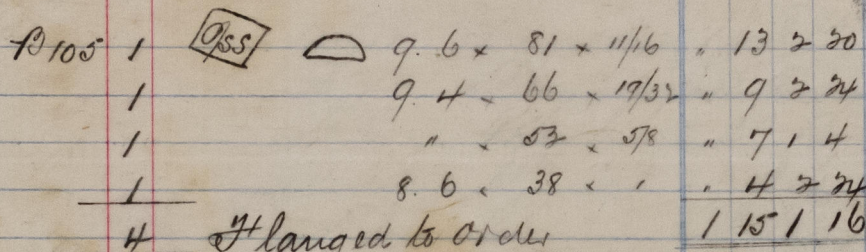 B105 1 OSS 9. 6 × 81 × 11/16 " 13 2 20
1 9. 4 × 66 × 19/32 " 9 2 24
1 " × 53 × 5/8 " 7 1 4
1 8. 6 × 38 × " " 4 2 24
4 Flanged to order 1 15 1 16